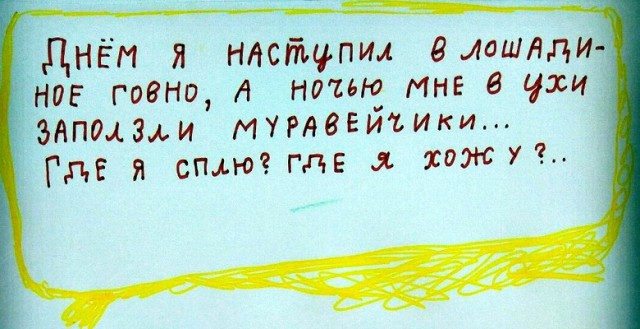 Днём я наступил в лошади-
ное говно, а ночью мне в ухи
заползли муравейчики...
Где я сплю? Где я хожу?..